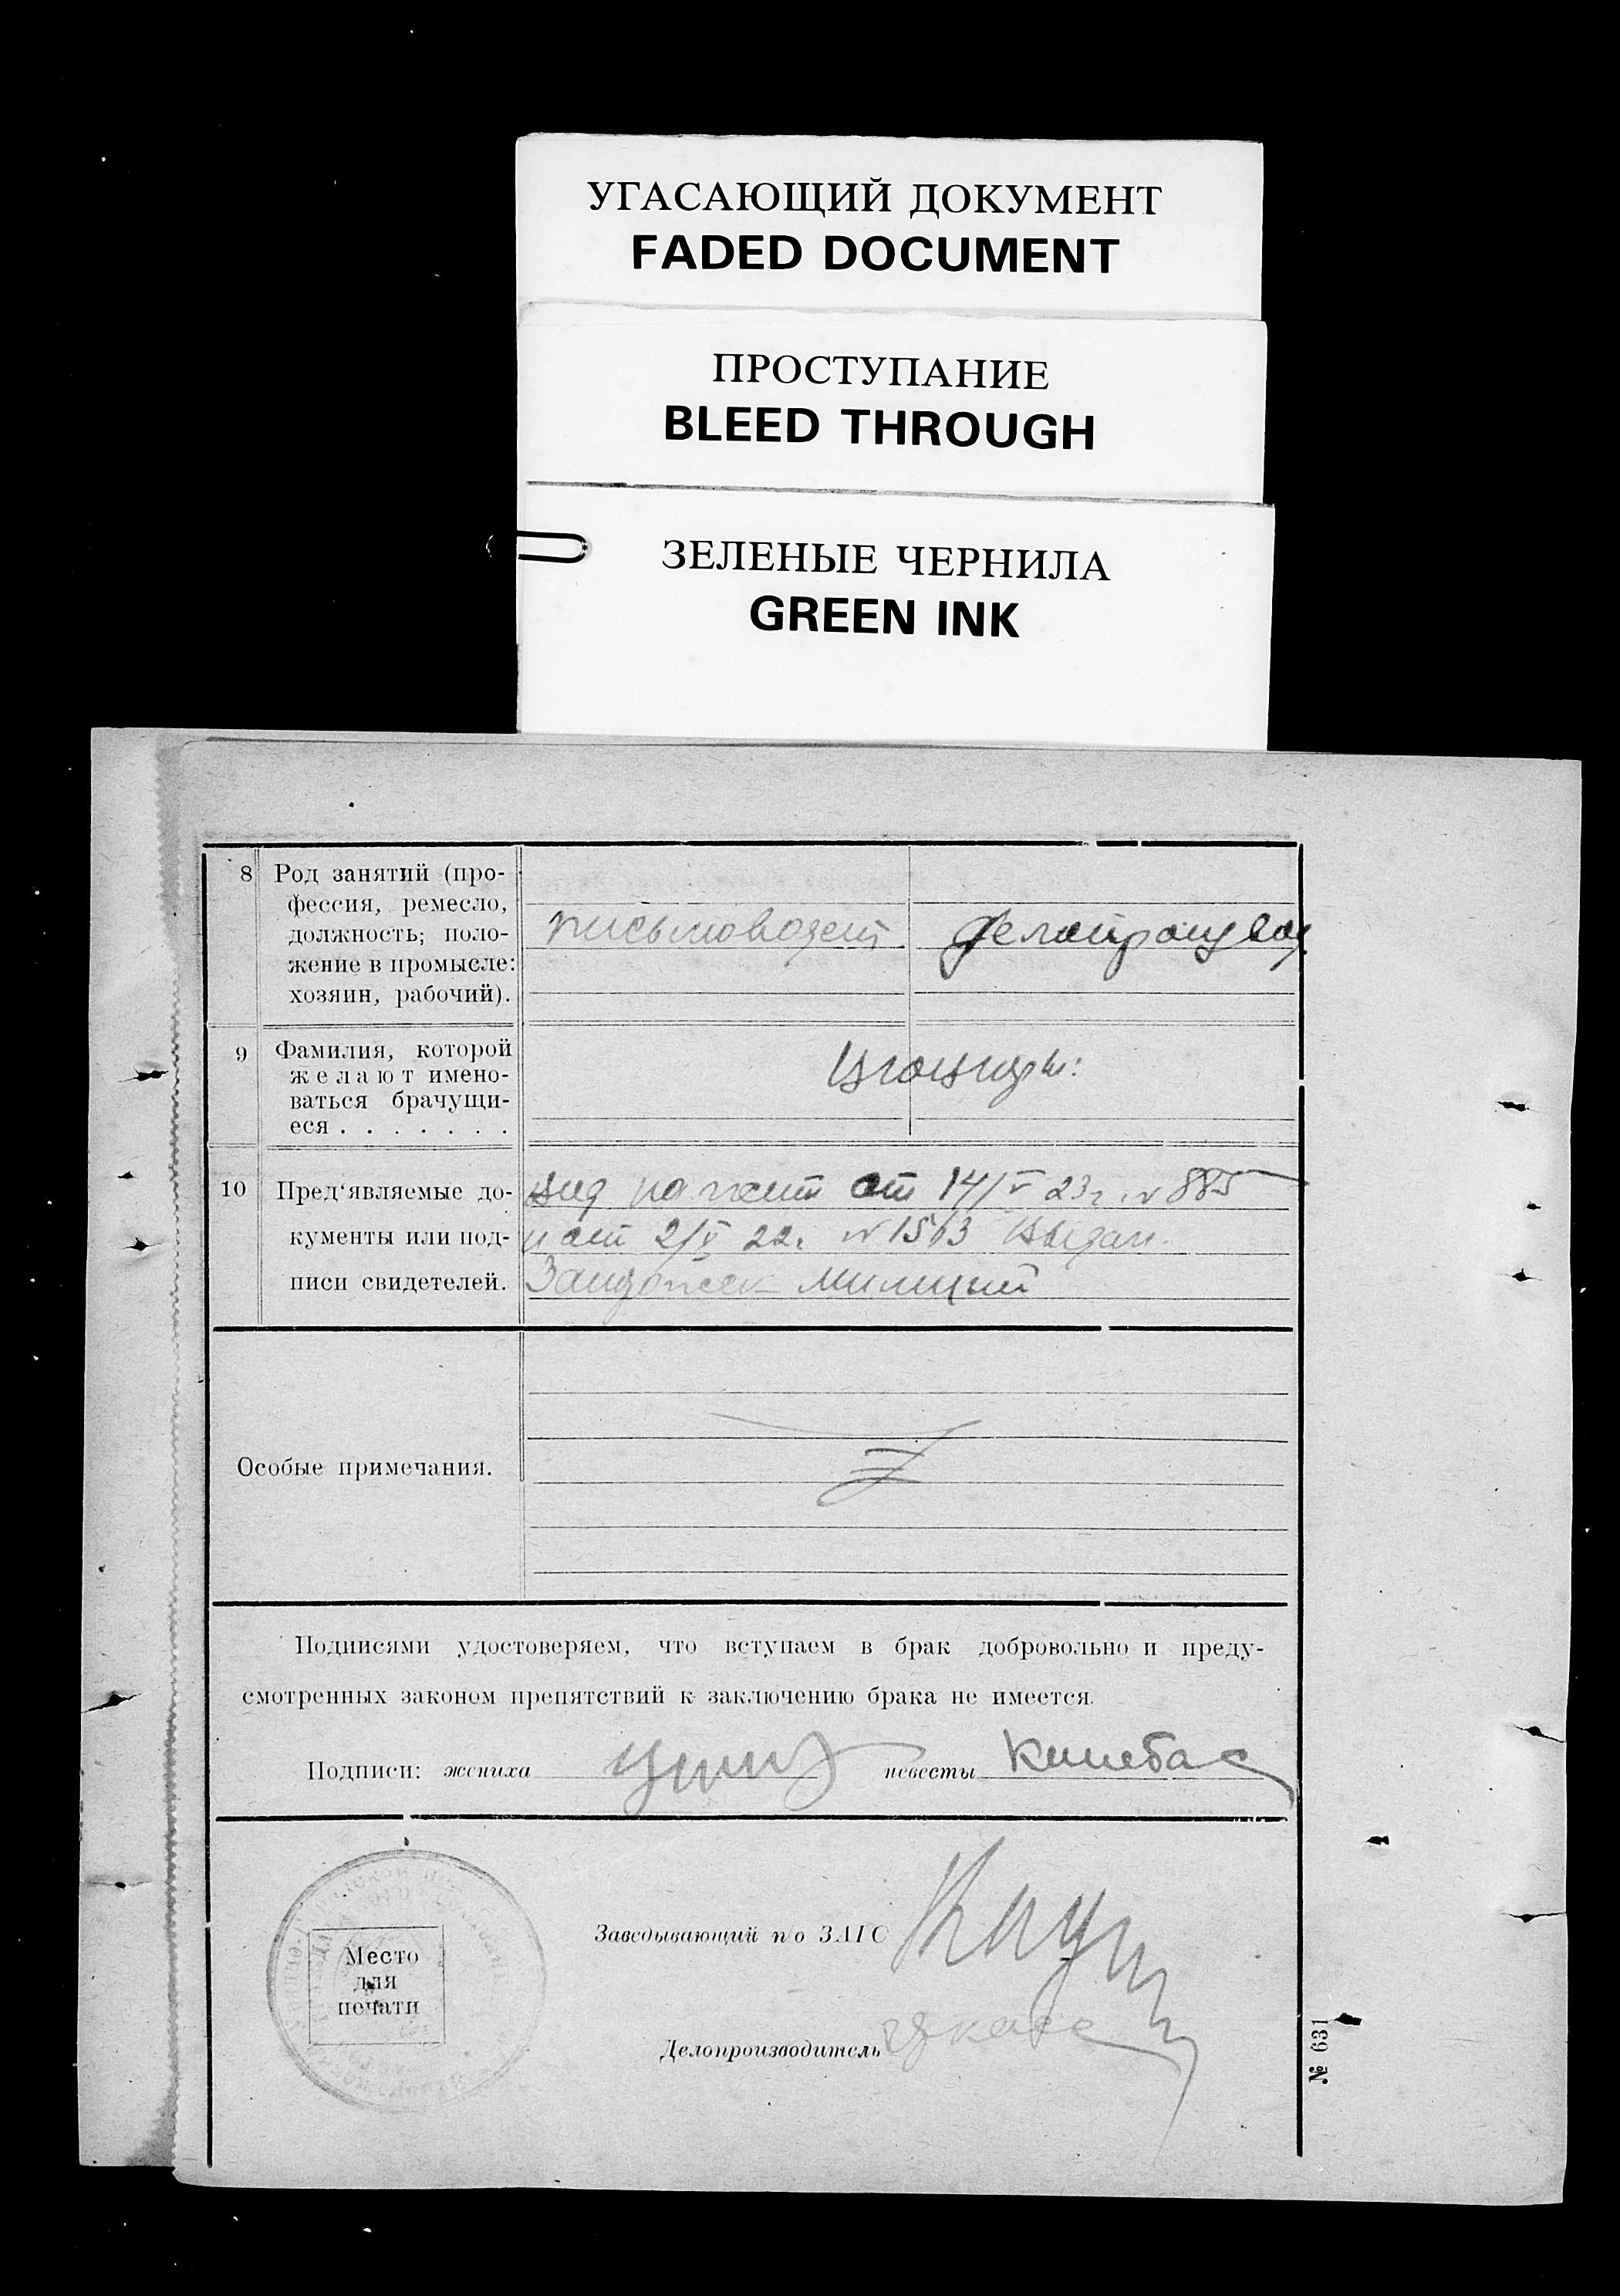 УГАСАЮЩИЙ ДОКУМЕНТ
FADED DOCUMENT
ПРОСТУПАНИЕ
BLEED THROUGH
ЗЕЛЕНЫЕ ЧЕРНИЛА
GREEN INK
8 Род занятий (про-
фессия, ремесло,
должность; поло-
жение в промысле:
хозяин, рабочий).
письмоводит
9 Фамилия, которой
желают имено-
ваться брачущи-
еся . . . . . . .
10 Пред‘являемые до-
кументы или под-
писи свидетелей.
вид на жит от 14/V 23г. № 885
и от 2/V 22г № 1563 выдан.
милиций
Особые примечания.
Подписями удостоверяем, что вступаем в брак добровольно и преду-
смотренных законом препятствий к заключению брака не имеется.
Подписи: жениха невесты
Место
для
печати
Заведывающий п/о ЗАГС
Делопроизводитель
№ 631